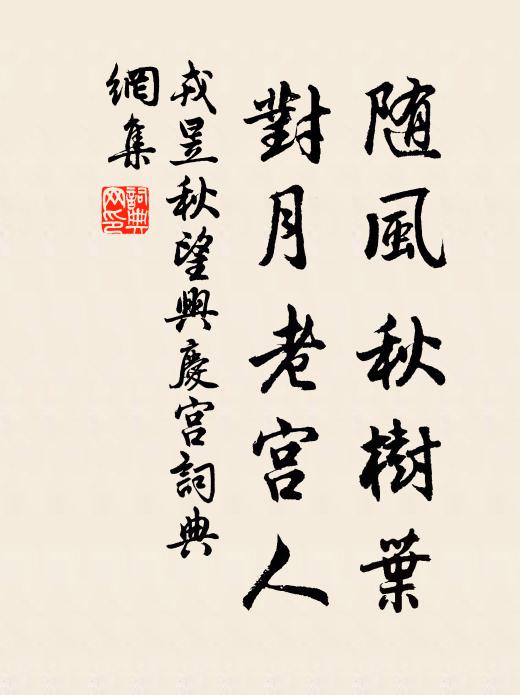 随風秋樹葉
對月老宮人
戎昱秋望興慶宮詞典
網集
詞典網印